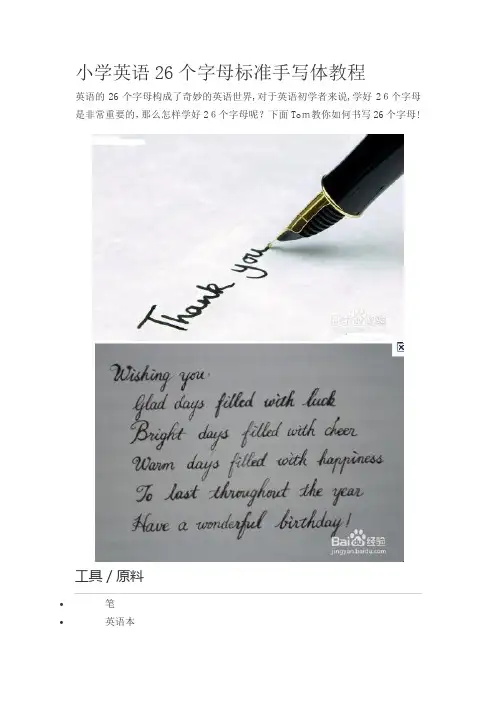 小学英语26个字母标准手写体教程
英语的26个字母构成了奇妙的英语世界,对于英语初学者来说,学好26个字母
是非常重要的，那么怎样学好26个字母呢？下面Tom教你如何书写26个字母!
Thank you
Wishing you.
Glad days filled with luck
Bright days filled with cheer
Warm days filled with happiness
To last throughout the year
Have a wonderful birthday!
Bai 经验
jingyan.baidu.com
工具/原料
• 笔
• 英语本